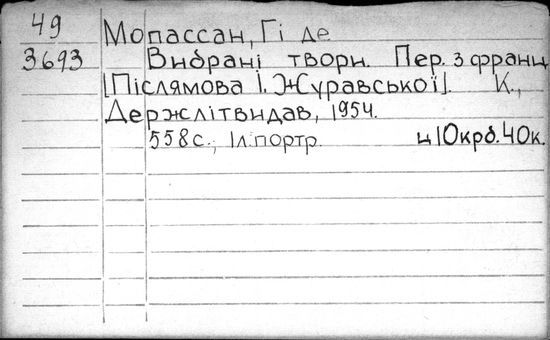 49
3693
Мопассан, Гі де
Вибрані твори. Пер. з франц.
[Післямова І. Журавської]. К.,
Держлітвидав, 1954.
558с., 1л.портр. ц 10крб.40к.